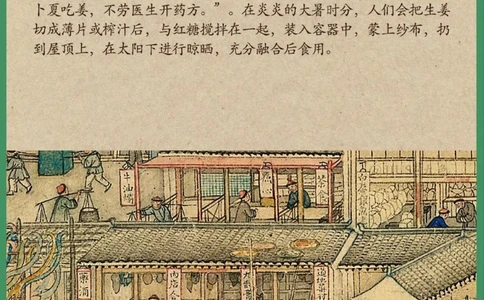 卜夏吃姜，不劳医生开药方。”。在炎炎的大暑时分，人们会把生姜
切成薄片或榨汁后，与红糖搅拌在一起，装入容器中，蒙上纱布，扔
到屋顶上，在太阳下进行晾晒，充分融合后食用。